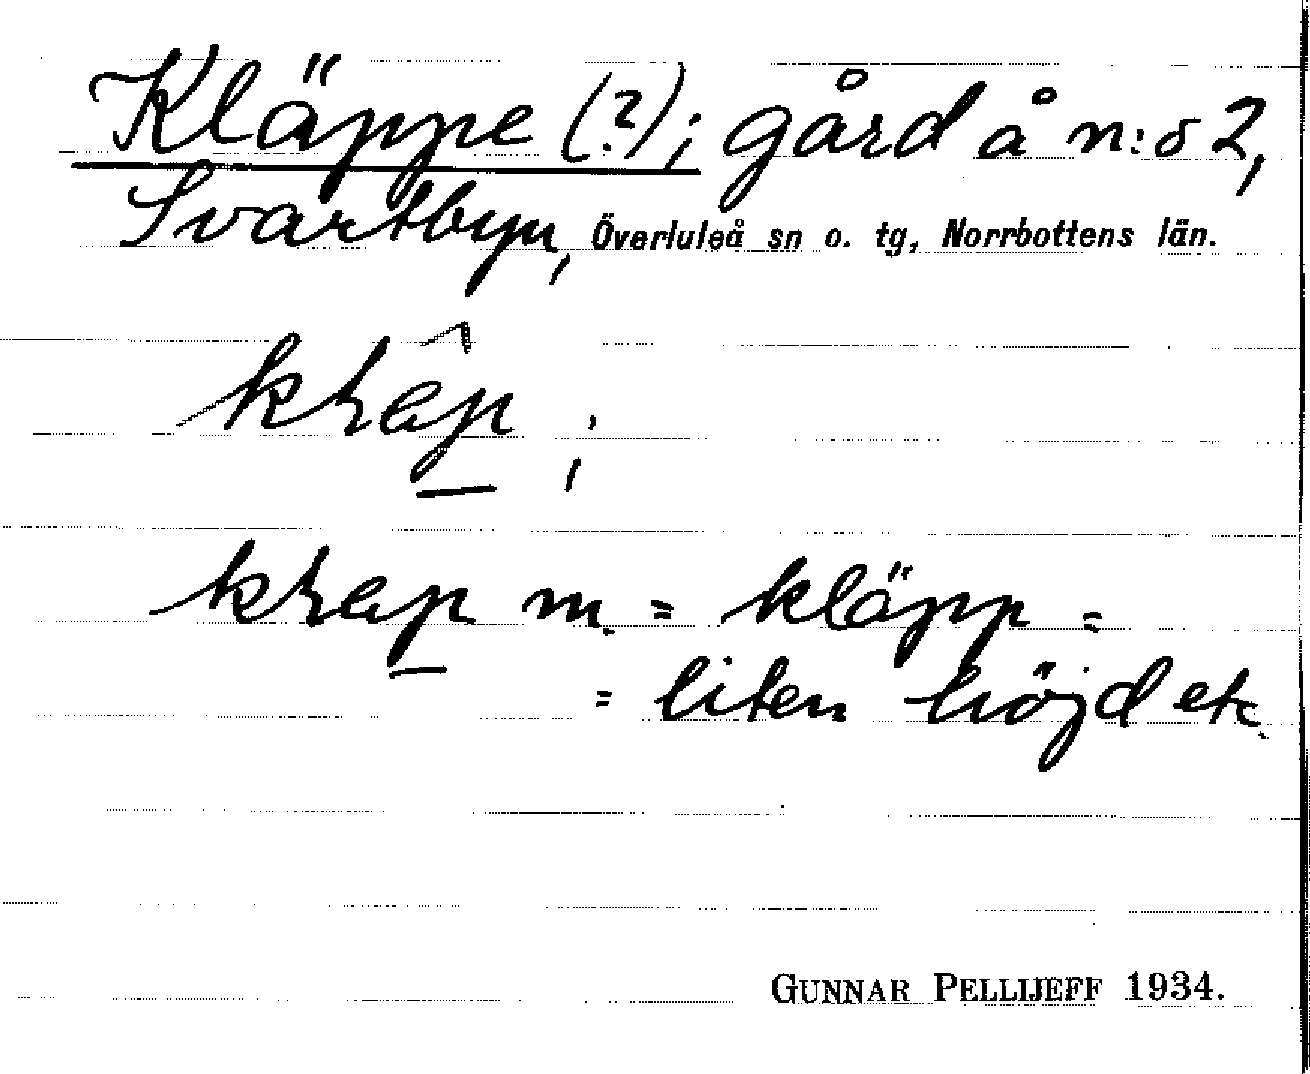 Kläppe (?); gård å n:o 2,
Svartbyn, Överluleå sn o. tg, Norrbottens län.
;
m. = kläpp =
= liten höjd etc.
GUNNAR PELLIJEFF 1934.